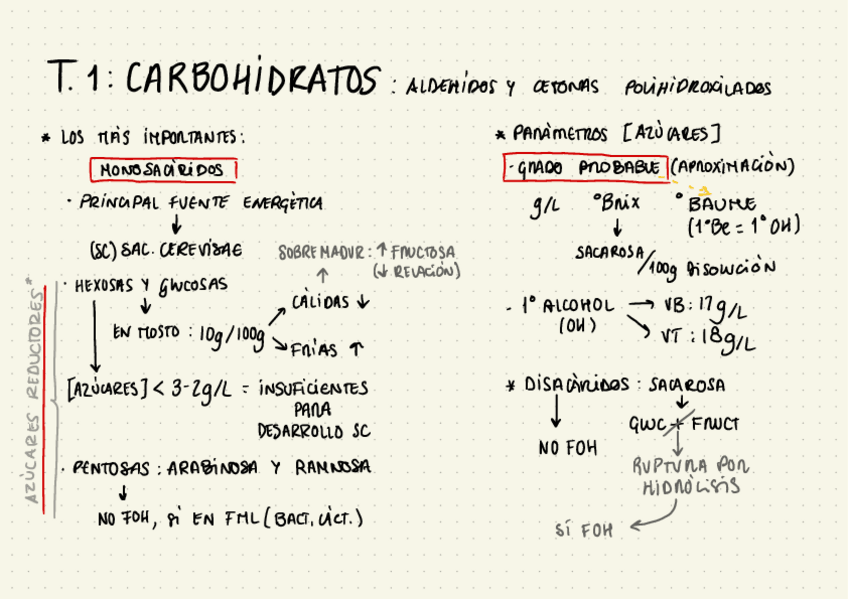 T.1: CARBOHIDRATOS: ALDEHIDOS Y CETONAS POLIHIDROXILADOS
* LOS MÀS IMPORTANTES:
MONOSACÀRIDOS
· PRINCIPAL FUENTE ENERGÈTICA
↓
(SC) SAC. CEREVISAE
SOBREMADUR: ↑ FRUCTOSA
(↓ RELACIÓN)
· HEXOSAS Y GLUCOSAS
CÀLIDAS ↓
EN MOSTO: 10g/100g
FRÍAS ↑
[AZÙCARES] < 3-2g/L = INSUFICIENTES
PARA
DESARROLLO SC
· PENTOSAS: ARABINOSA Y RAMNOSA
↓
NO FOH, SÍ EN FML (BACT. LÀCT.)
AZÙCARES REDUCTORES*
* PARÀMETROS [AZÙCARES]
· GRADO PROBABLE (APROXIMACIÒN)
g/L °Brix ° BAUME
(1°Be = 1° OH)
SACAROSA/100g DISOLUCIÒN
- 1° ALCOHOL → VB: 17g/L
(OH) VT: 18g/L
* DISACÀRIDOS: SACAROSA
↓
GLUC + FRUCT
NO FOH
RUPTURA POR
HIDRÒLISIS
SÍ FOH ←